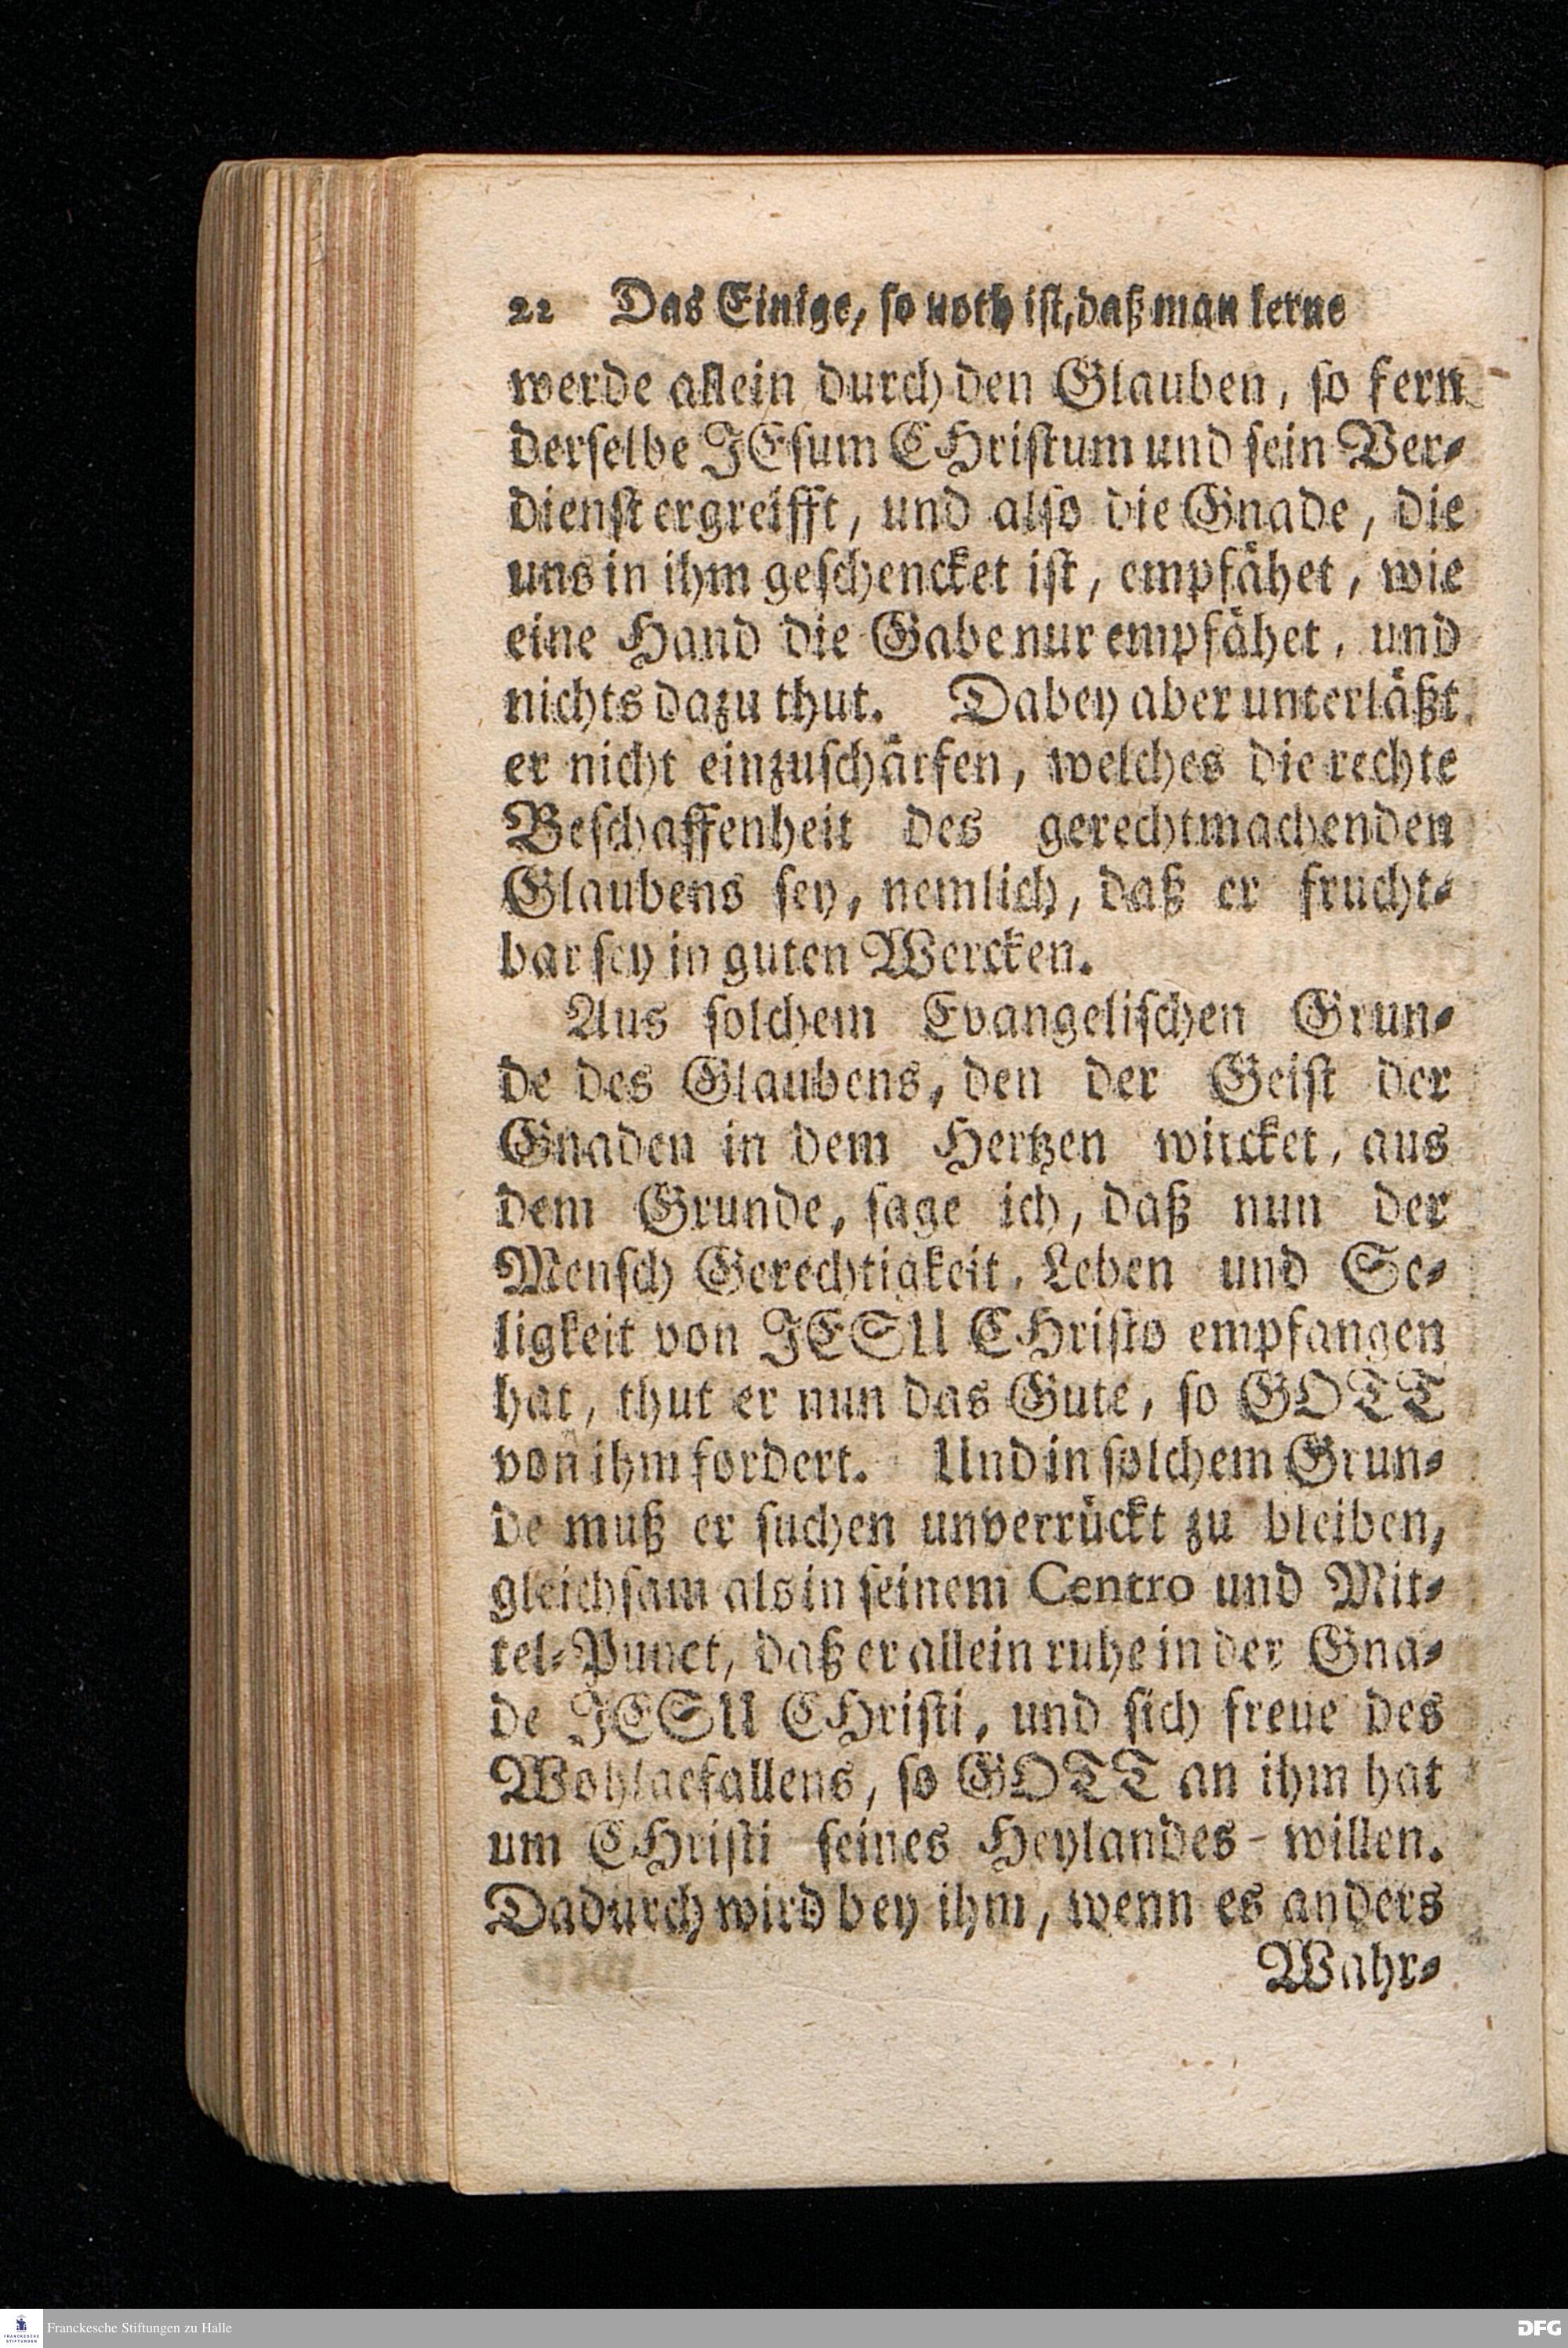 22 Das Einige, so noth ist, daß man lerne
werde allein durch den Glauben, so fern
derselbe JEsum CHristum und sein Ver-
dienst ergreifft, und also die Gnade, die
uns in ihm geschencket ist, empfähet, wie
eine Hand die Gabe nur empfähet, und
nichts dazu thut. Dabey aber unterläßt
er nicht einzuschärfen, welches die rechte
Beschaffenheit des gerechtmachenden
Glaubens sey, nemlich, daß er frucht-
bar sey in guten Wercken.
Aus solchem Evangelischen Grun-
de des Glaubens, den der Geist der
Gnaden in dem Hertzen wircket, aus
dem Grunde, sage ich, daß nun der
Mensch Gerechtigkeit, Leben und Se-
ligkeit von JESU CHristo empfangen
hat, thut er nun das Gute, so GOTT
von ihm fordert. Und in solchem Grun-
de muß er suchen unverrückt zu bleiben,
gleichsam als in seinem Centro und Mit-
tel-Punct, daß er allein ruhe in der Gna-
de JESU CHristi, und sich freue des
Wohlgefallens, so GOTT an ihm hat
um CHristi seines Heylandes-willen.
Dadurch wird bey ihm, wenn es anders
Wahr-
FRANCKESCHE STIFTUNGEN
Franckesche Stiftungen zu Halle
DFG